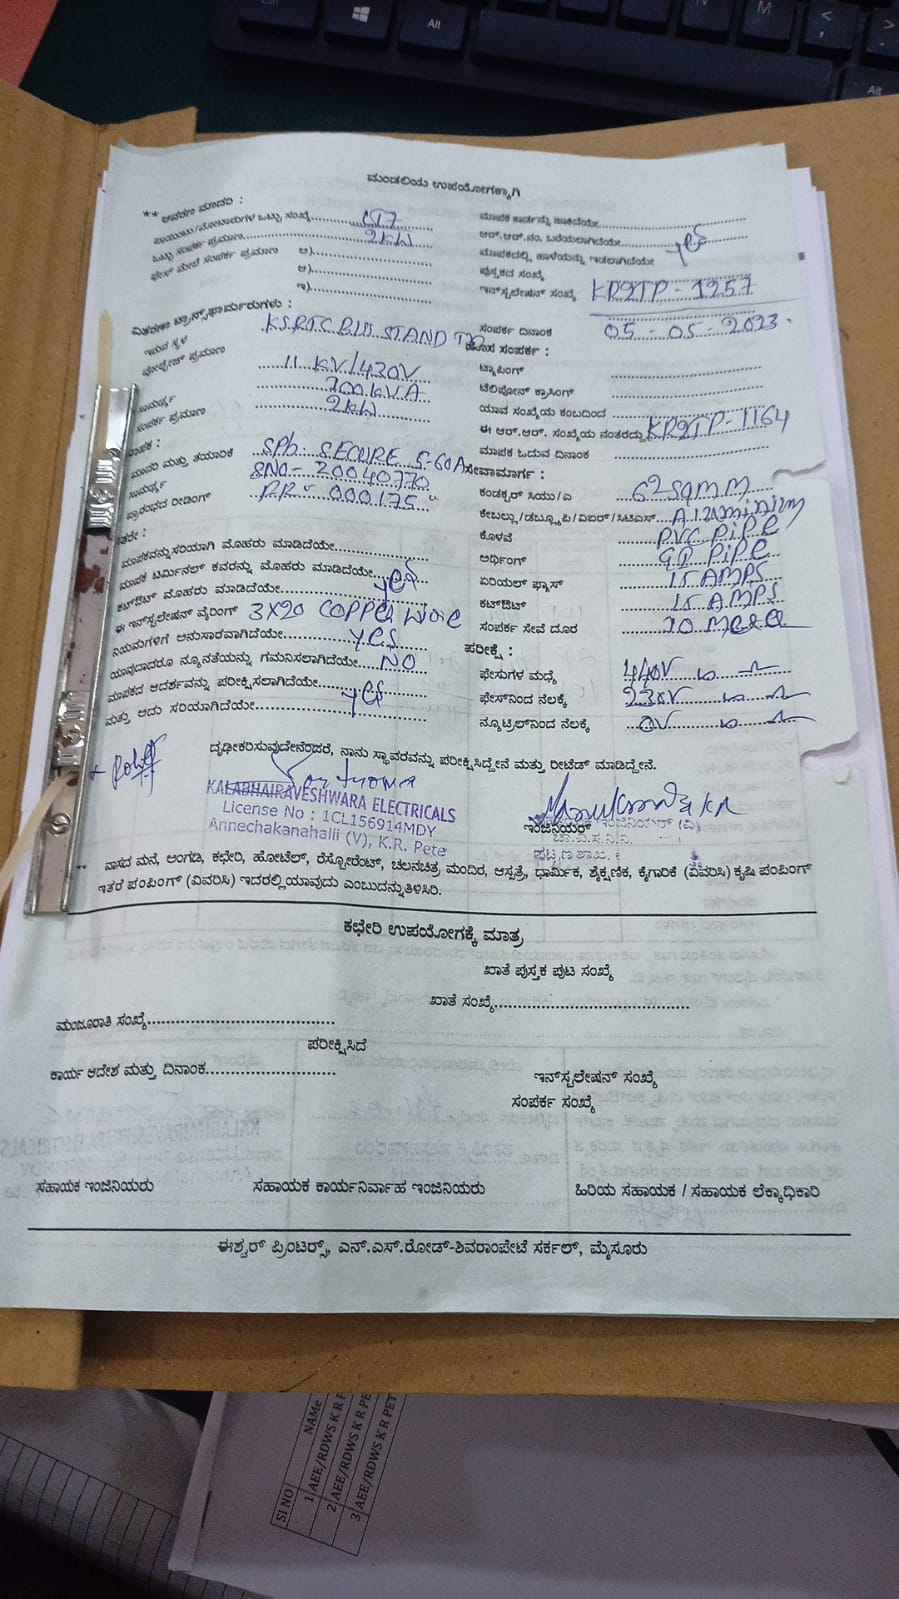 ಮಂಡಲಿಯ ಉಪಯೋಗಕ್ಕಾಗಿ
** ಆವರಣ ಮಾದರಿ :
ಪಾಯಿಂಟು/ಮೋಟಾರುಗಳ ಒಟ್ಟು ಸಂಖ್ಯೆ
ಒಟ್ಟು ಸಂಪರ್ಕ ಪ್ರಮಾಣ 2kW
ಫೇಸ್ ಮೇಲೆ ಸಂಪರ್ಕ ಪ್ರಮಾಣ ಅ)
ಆ)
ಇ)
ಮಾಪಕ ಕಾರ್ಡನ್ನು ಹಾಕಿದೆಯೇ
ಆರ್.ಆರ್.ನಂ. ಬರೆಯಲಾಗಿದೆಯೇ
ಮಾಪಕದಲ್ಲಿ ಹಾಳೆಯನ್ನು ಇಡಲಾಗಿದೆಯೇ yes
ಪುಸ್ತಕದ ಸಂಖ್ಯೆ
ಇನ್‌ಸ್ಟಲೇಷನ್ ಸಂಖ್ಯೆ KR2TP-1257
ವಿತರಣಾ ಟ್ರಾನ್ಸ್‌ಫಾರ್ಮರುಗಳು :
ಇರುವ ಸ್ಥಳ KSRTC BUS STAND
ವೋಲ್ಟೇಜ್ ಪ್ರಮಾಣ 11 KV/430V
ಸಾಮರ್ಥ್ಯ
ಸಂಪರ್ಕ ಪ್ರಮಾಣ 2kW
ಸಂಪರ್ಕ ದಿನಾಂಕ 05-05-2023.
ಹೊಸ ಸಂಪರ್ಕ :
ಟ್ಯಾಪಿಂಗ್
ಟೆಲಿಫೋನ್ ಕ್ರಾಸಿಂಗ್
ಯಾವ ಸಂಖ್ಯೆಯ ಕಂಬದಿಂದ
ಈ ಆರ್.ಆರ್. ಸಂಖ್ಯೆಯ ನಂತರದ್ದು KR2TP-1164
ಮಾಪಕ ಓದುವ ದಿನಾಂಕ
ಮಾಪಕ :
ಮಾದರಿ ಮತ್ತು ತಯಾರಿಕೆ SPh. SECURE 5-60A
ಸಾಮರ್ಥ್ಯ SNO-
ಪ್ರಾರಂಭದ ರೀಡಿಂಗ್ 000175
ಸೇವಾಮಾರ್ಗ :
ಕಂಡಕ್ಟರ್ ಸಿಯು/ಎ
ಕೇಬಲ್ಲು/ಡಬ್ಲ್ಯೂಪಿ/ಎಐಆರ್/ಸಿಟಿಎಸ್ Aluminium
ಕೊಳವೆ PVC PiPe
ಅರ್ಥಿಂಗ್ GI PiPe
ಏರಿಯಲ್ ಫ್ಯೂಸ್ 15 AMPS
ಕಟ್‌ಔಟ್ 15 AMPS
ಸಂಪರ್ಕ ಸೇವೆ ದೂರ
ಇತರೇ :
ಮಾಪಕವನ್ನು ಸರಿಯಾಗಿ ಮೊಹರು ಮಾಡಿದೆಯೇ
ಮಾಪಕ ಟರ್ಮಿನಲ್ ಕವರನ್ನು ಮೊಹರು ಮಾಡಿದೆಯೇ yes
ಕಟ್‌ಔಟ್ ಮೊಹರು ಮಾಡಿದೆಯೇ
ಈ ಇನ್‌ಸ್ಟಲೇಷನ್ ವೈರಿಂಗ್ 3X20 COPPER Wire
ನಿಯಮಗಳಿಗೆ ಅನುಸಾರವಾಗಿದೆಯೇ yes
ಯಾವುದಾದರೂ ನ್ಯೂನತೆಯನ್ನು ಗಮನಿಸಲಾಗಿದೆಯೇ NO
ಮಾಪಕದ ಆದರ್ಶವನ್ನು ಪರೀಕ್ಷಿಸಲಾಗಿದೆಯೇ
ಮತ್ತು ಅದು ಸರಿಯಾಗಿದೆಯೇ yes
ಪರೀಕ್ಷೆ :
ಫೇಸುಗಳ ಮಧ್ಯೆ 440V
ಫೇಸ್‌ನಿಂದ ನೆಲಕ್ಕೆ 230V
ನ್ಯೂಟ್ರಲ್‌ನಿಂದ ನೆಲಕ್ಕೆ 0V
ದೃಢೀಕರಿಸುವುದೇನೆಂದರೆ, ನಾನು ಸ್ಥಾವರವನ್ನು ಪರೀಕ್ಷಿಸಿದ್ದೇನೆ ಮತ್ತು ರೀಟೆಡ್ ಮಾಡಿದ್ದೇನೆ.
KALABHAIRAVESHWARA ELECTRICALS
License No : 1CL156914MDY
Annechakanahalli (V), K.R. Pete
ಇಂಜಿನಿಯರ್
** ವಾಸದ ಮನೆ, ಅಂಗಡಿ, ಕಛೇರಿ, ಹೋಟೆಲ್, ರೆಸ್ಟೋರೆಂಟ್, ಚಲನಚಿತ್ರ ಮಂದಿರ, ಆಸ್ಪತ್ರೆ, ಧಾರ್ಮಿಕ, ಶೈಕ್ಷಣಿಕ, ಕೈಗಾರಿಕೆ (ವಿವರಿಸಿ) ಕೃಷಿ ಪಂಪಿಂಗ್
ಇತರೆ ಪಂಪಿಂಗ್ (ವಿವರಿಸಿ) ಇದರಲ್ಲಿ ಯಾವುದು ಎಂಬುದನ್ನು ತಿಳಿಸಿರಿ.
ಕಛೇರಿ ಉಪಯೋಗಕ್ಕೆ ಮಾತ್ರ
ಖಾತೆ ಪುಸ್ತಕ ಪುಟ ಸಂಖ್ಯೆ
ಖಾತೆ ಸಂಖ್ಯೆ
ಮಂಜೂರಾತಿ ಸಂಖ್ಯೆ
ಪರೀಕ್ಷಿಸಿದೆ
ಕಾರ್ಯ ಆದೇಶ ಮತ್ತು ದಿನಾಂಕ
ಇನ್‌ಸ್ಟಲೇಷನ್ ಸಂಖ್ಯೆ
ಸಂಪರ್ಕ ಸಂಖ್ಯೆ
ಸಹಾಯಕ ಇಂಜಿನಿಯರು ಸಹಾಯಕ ಕಾರ್ಯನಿರ್ವಾಹ ಇಂಜಿನಿಯರು ಹಿರಿಯ ಸಹಾಯಕ / ಸಹಾಯಕ ಲೆಕ್ಕಾಧಿಕಾರಿ
ಈಶ್ವರ್ ಪ್ರಿಂಟರ್ಸ್, ಎನ್.ಎಸ್.ರೋಡ್-ಶಿವರಾಂಪೇಟೆ ಸರ್ಕಲ್, ಮೈಸೂರು
Sl NO NAMe
1 AEE/RDWS K R P
2 AEE/RDWS K R PE
3 AEE/RDWS K R PET